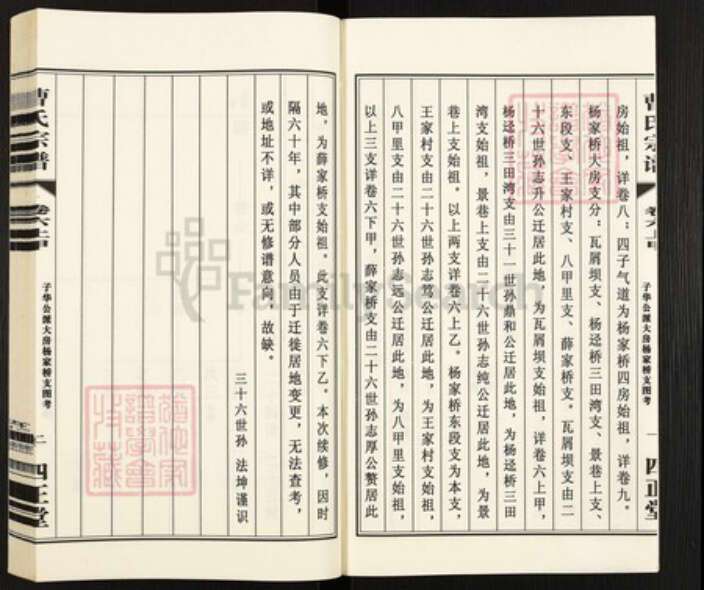 房始祖，详卷八；四子气道为杨家桥四房始祖，详卷九。
杨家桥大房支分：瓦屑坝支、杨迳桥三田湾支、景巷上支、
东段支、王家村支、八甲里支、薛家桥支。瓦屑坝支由二
十六世孙志升公迁居此地，为瓦屑坝支始祖，详卷六上甲，
杨迳桥三田湾支由三十一世孙鼎和公迁居此地，为杨迳桥三田
湾支始祖，景巷上支由二十六世孙志纯公迁居此地，为景
巷上支始祖。以上两支详卷六上乙。杨家桥东段支为本支，
王家村支由二十六世孙志笃公迁居此地，为王家村支始祖，
八甲里支由二十六世孙志远公迁居此地，为八甲里支始祖，
以上三支详卷六下甲，薛家桥支由二十六世孙志厚公赘居此
曹氏宗谱
卷六上中
子华公派大房杨家桥支图考
一
四正堂
地，为薛家桥支始祖。此支详卷六下乙。本次续修，因时
隔六十年，其中部分人员由于迁徙居地变更，无法查考，
或地址不详，或无修谱意向，故缺。
三十六世孙 法坤谨识
曹氏宗谱
卷六上中
子华公派大房杨家桥支图考
二
四正堂
FamilySearch